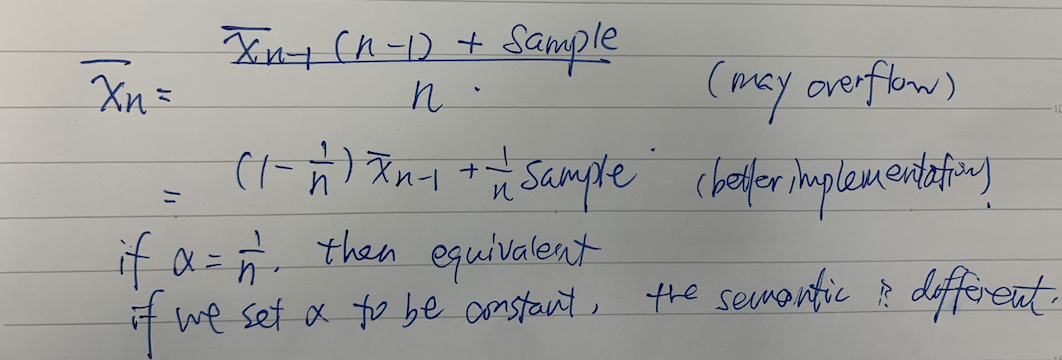 x̄ₙ = (x̄ₙ₋₁ (n-1) + Sample) / n . (may overflow)
= (1 - 1/n) x̄ₙ₋₁ + 1/n Sample (better implementation)
if α = 1/n, then equivalent
if we set α to be constant, the semantic is different.